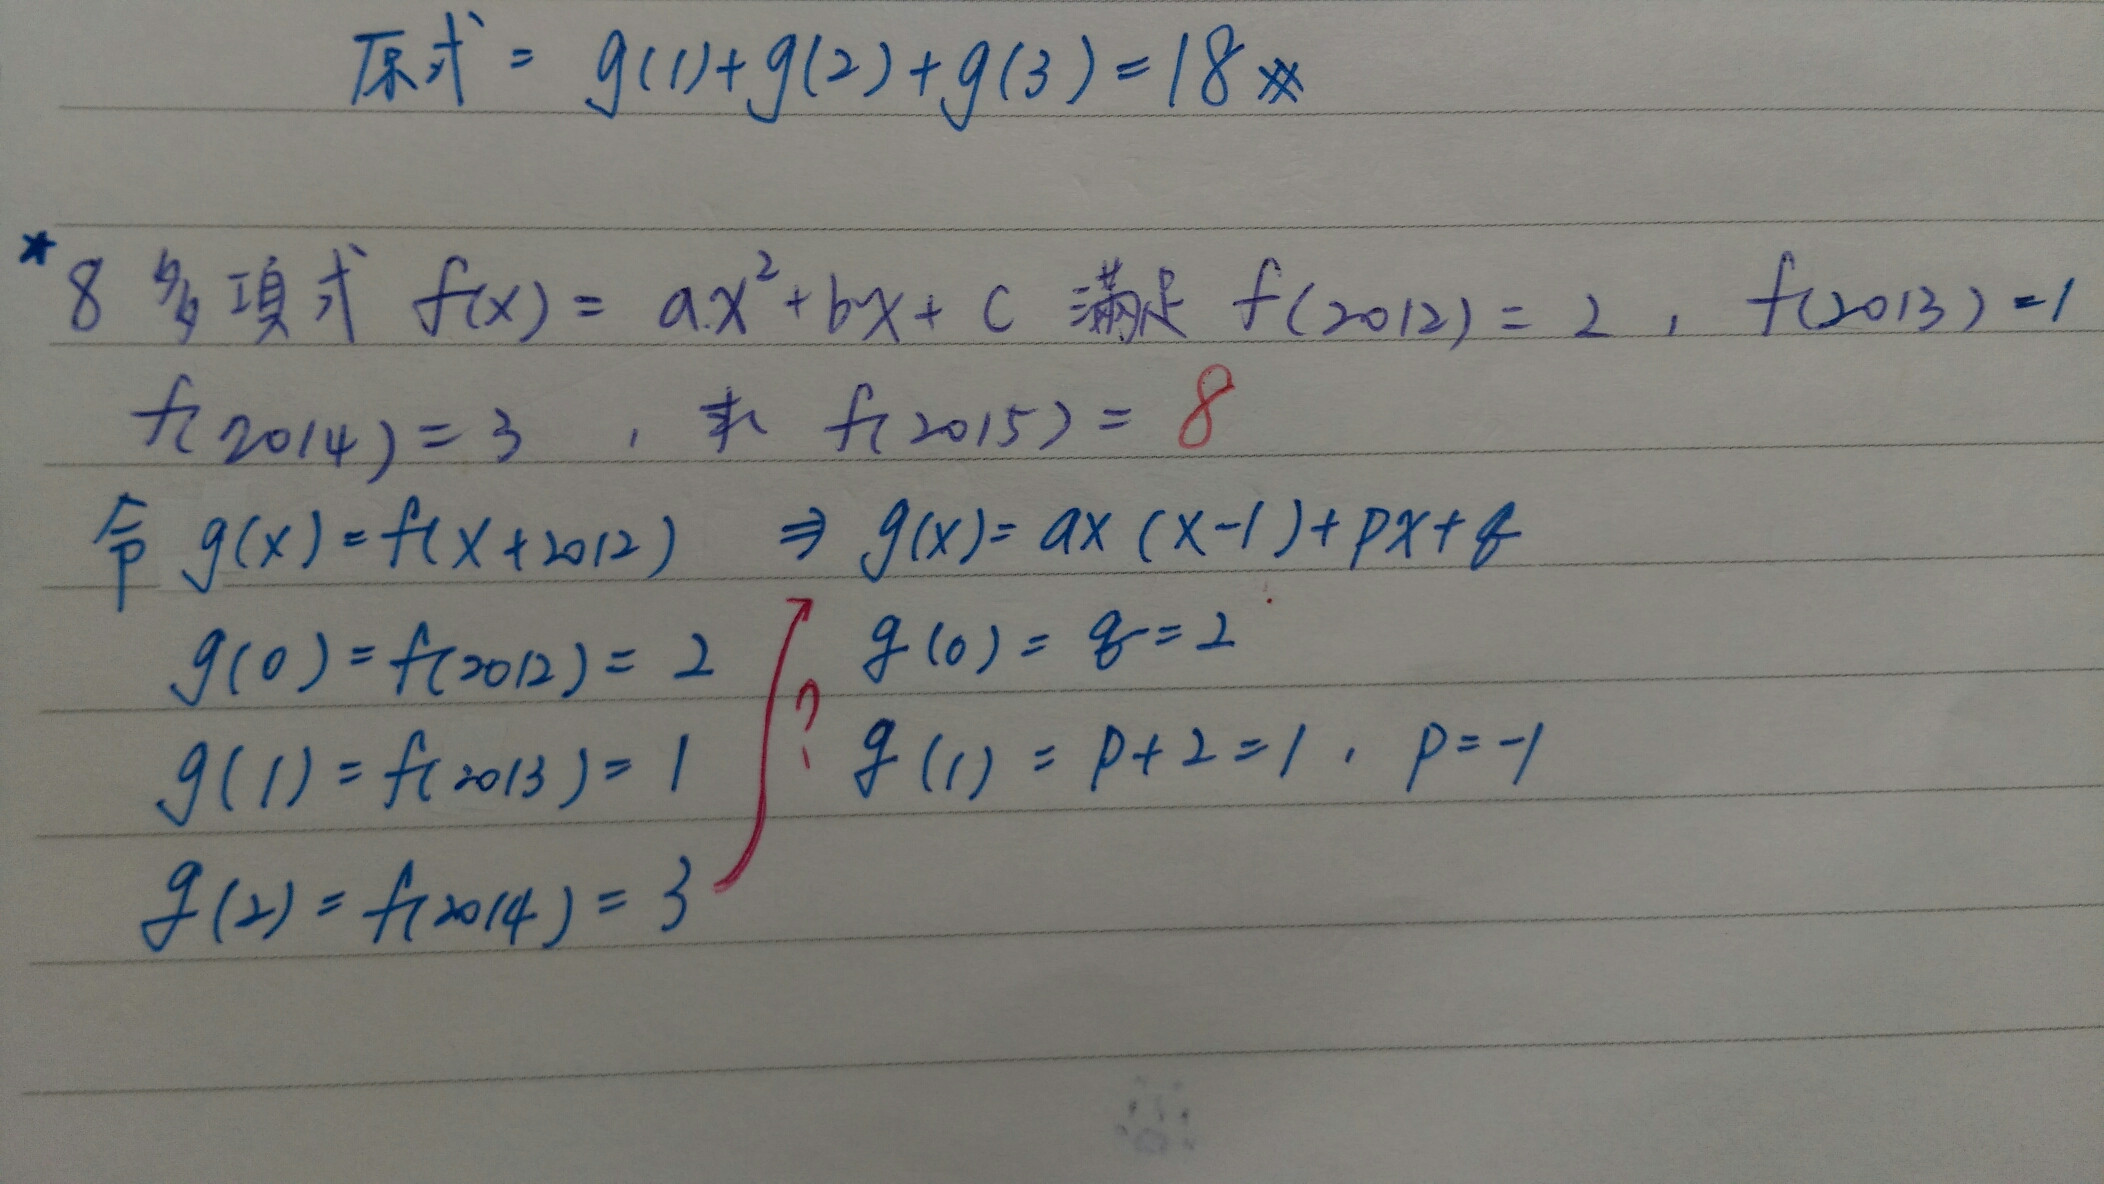 原式 = g(1)+g(2)+g(3)=18 ※
*8 多項式 f(x) = ax²+bx+c 滿足 f(2012)=2, f(2013)=1
f(2014)=3, 求 f(2015)= 8
令 g(x)=f(x+2012) ⇒ g(x)= ax(x-1)+px+q
g(0)=f(2012)=2 g(0)=q=2
g(1)=f(2013)=1 ? g(1)=p+2=1, p=-1
g(2)=f(2014)=3